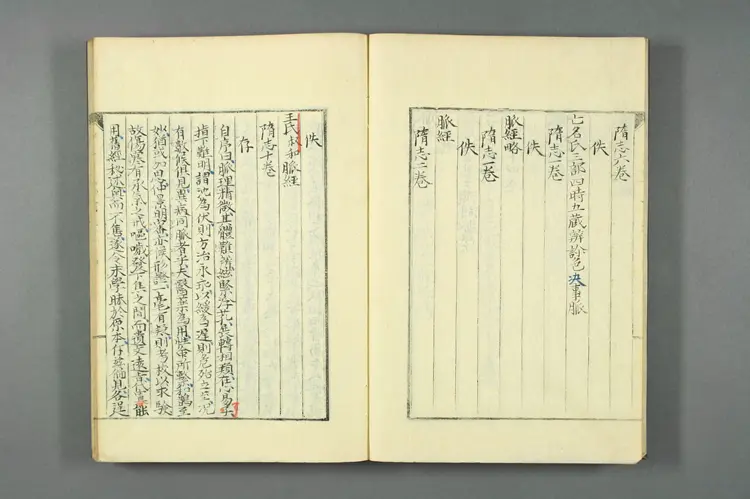 隋志六卷
佚
亡名氏三部四時五藏辨診色決事脈
隋志一卷
佚
脈經略
隋志一卷
佚
脈經
隋志二卷
佚
王氏叔和脈經
隋志十卷
存
自序曰脈理精微其體難辨弦緊浮芤展轉相類在心易了
指下難明謂沈為伏則方治永乖以緩為遲則危殆立至況
有數候俱見異病同脈者乎夫醫藥為用性命所繫和鵲至
妙猶或加思仲景明審亦候形證一毫有疑則考校以求驗
故傷寒有承氣之戒嘔噦發下焦之間而遺文遠旨代寡能
用舊經秘述奧而不售遂令末學昧於原本斥茲偏見各逞